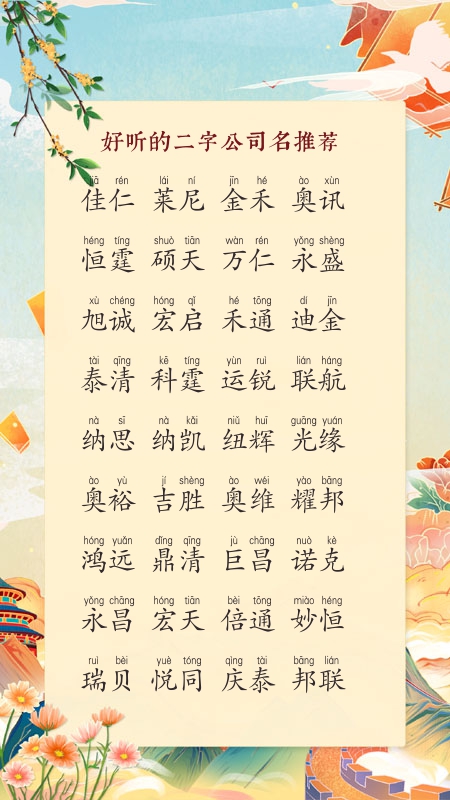 好听的二字公司名推荐
jiā rén lái ní jīn hé ào xùn
佳仁 莱尼 金禾 奥讯
héng tíng shuò tiān wàn rén yǒng shèng
恒霆 硕天 万仁 永盛
xù chéng hóng qǐ hé tōng dí jīn
旭诚 宏启 禾通 迪金
tài qīng kē tíng yùn ruì lián háng
泰清 科霆 运锐 联航
nà sī nà kǎi niǔ huī guāng yuán
纳思 纳凯 纽辉 光缘
ào yù jí shèng ào wéi yào bāng
奥裕 吉胜 奥维 耀邦
hóng yuǎn dǐng qīng jù chāng nuò kè
鸿远 鼎清 巨昌 诺克
yǒng chāng hóng tiān bèi tōng miào héng
永昌 宏天 倍通 妙恒
ruì bèi yuè tóng qìng tài bāng lián
瑞贝 悦同 庆泰 邦联